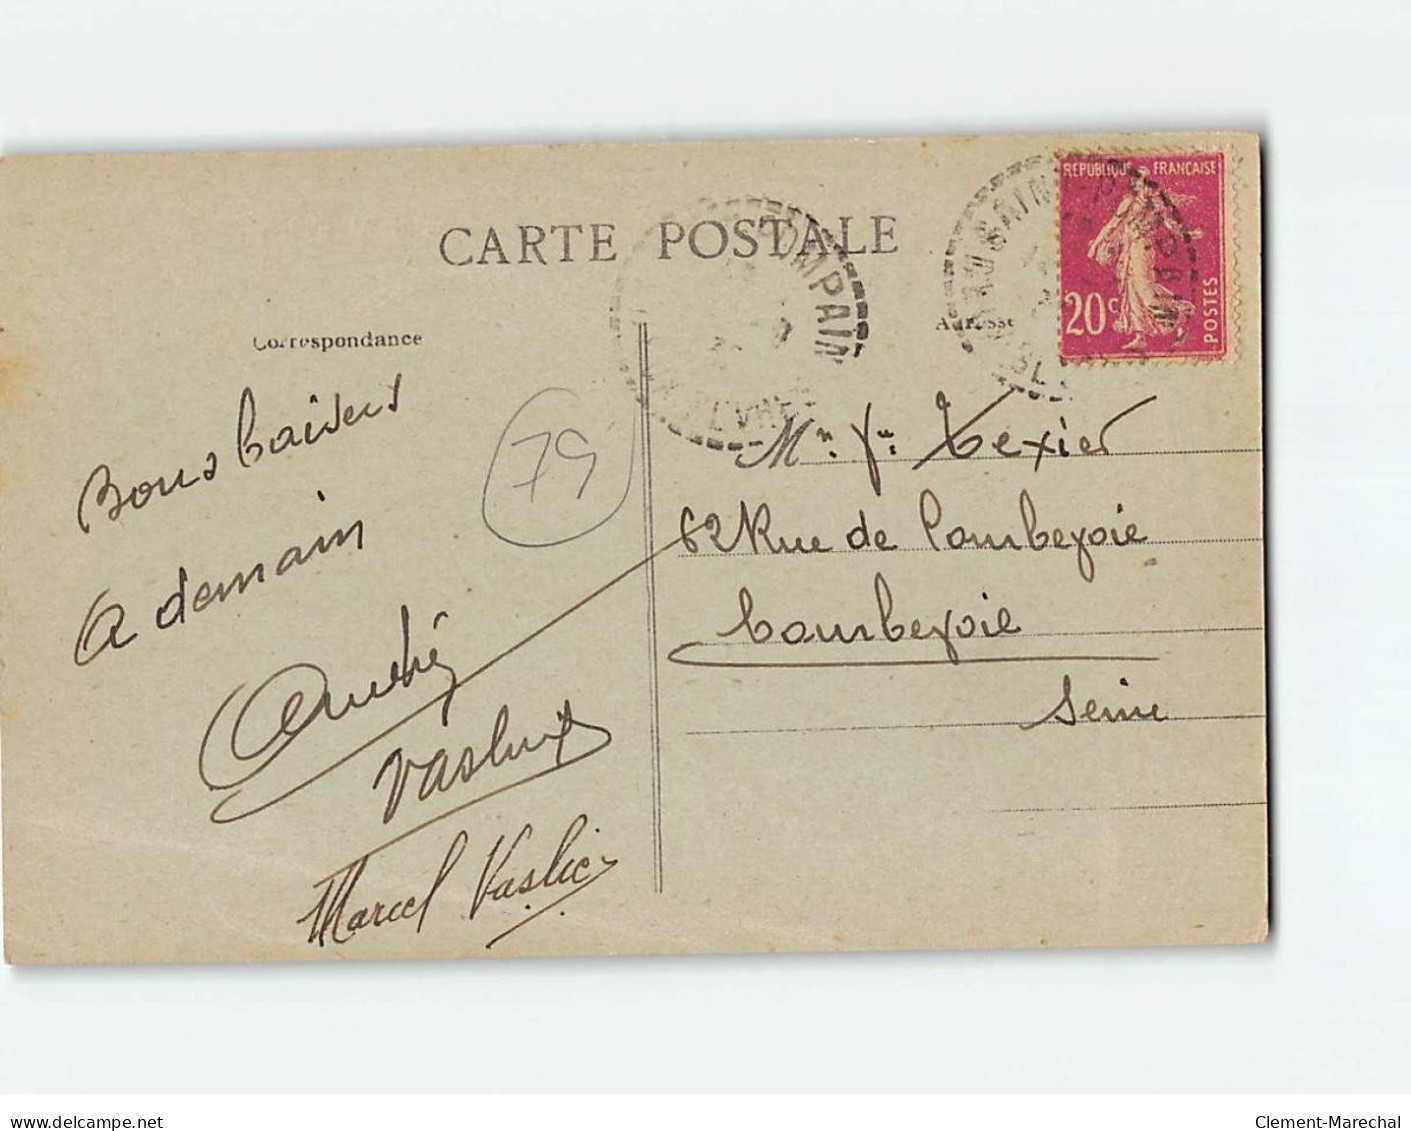 CARTE POSTALE
Correspondance
Adresse
REPUBLIQUE FRANÇAISE
20c
POSTES
COMPAIN
SAINT-POMPAIN
Bons baisers
A demain
André
Marcel
79
Mr. Texier
62 Rue de Courbevoie
Courbevoie
Seine
www.delcampe.net
Clement-Marechal